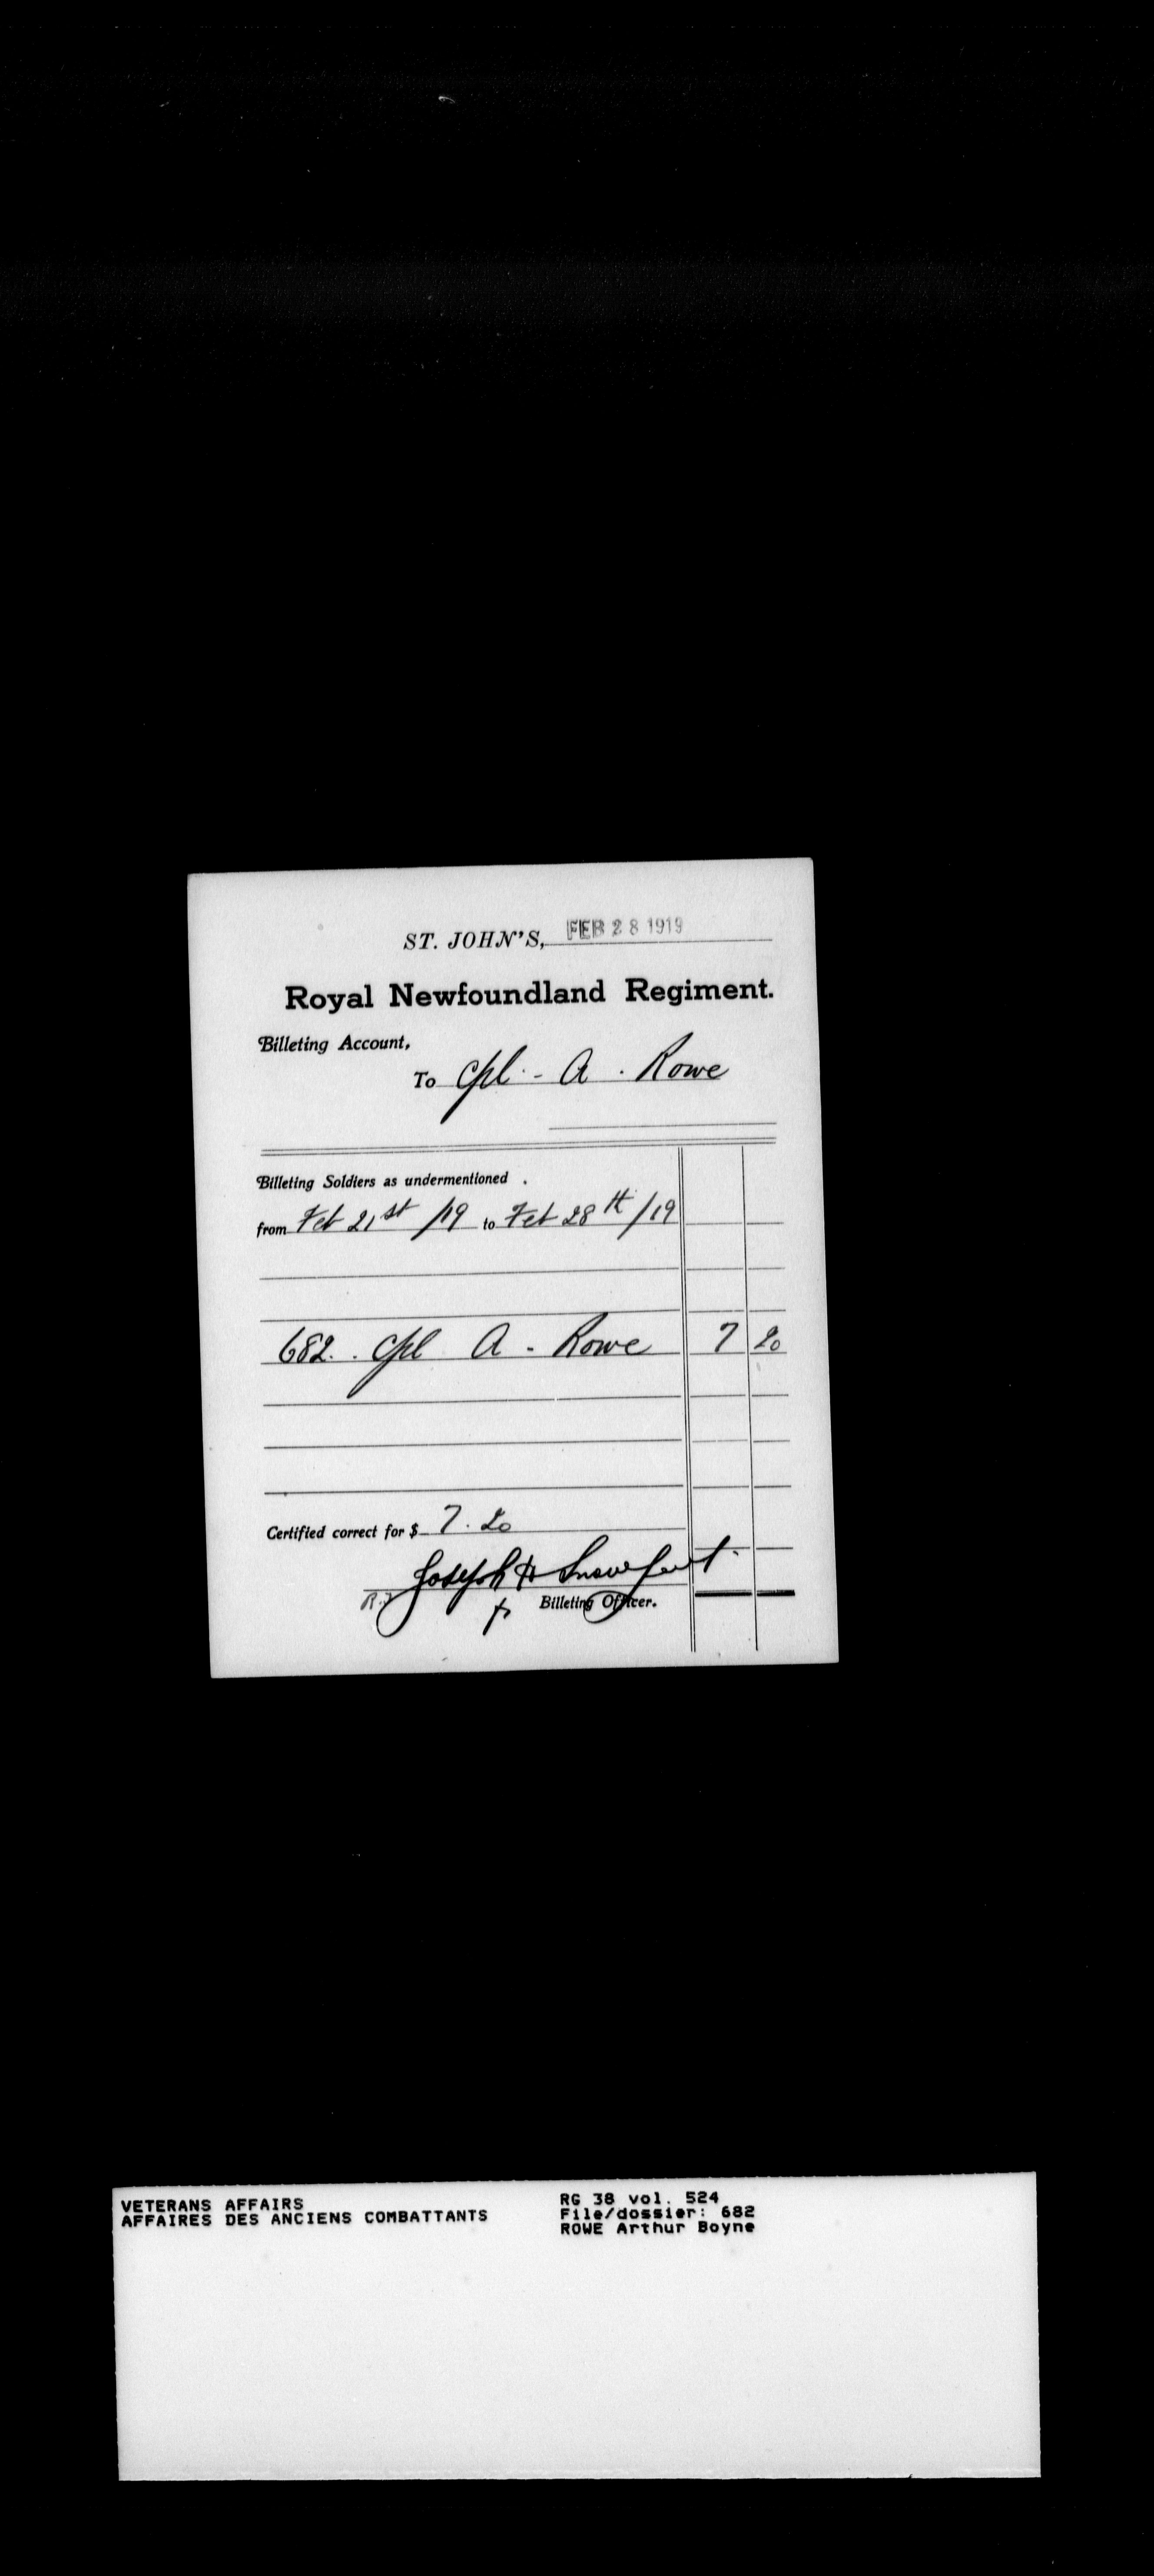 ST. JOHN'S, FEB 28 1919
Royal Newfoundland Regiment.
Billeting Account,
To Cpl. - A. Rowe
Billeting Soldiers as undermentioned.
from Feb 21st /19 to Feb 28th /19
682. Cpl A. Rowe 7 20
Certified correct for $ 7.20
Joseph H Snow
Billeting Officer.
VETERANS AFFAIRS
AFFAIRES DES ANCIENS COMBATTANTS
RG 38 vol. 524
File/dossier: 682
ROWE Arthur Boyne